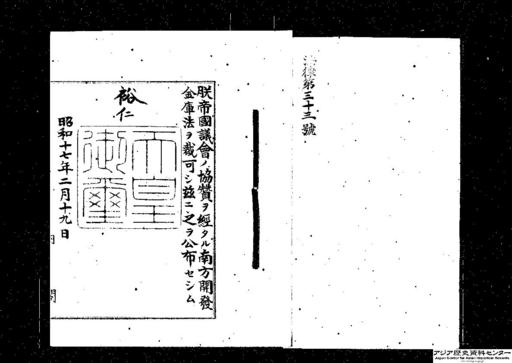 法律第三十三號
朕帝國議會ノ協贊ヲ經タル南方開發
金庫法ヲ裁可シ茲ニ之ヲ公布セシム
裕仁
天皇
御璽
昭和十七年二月十九日
アジア歴史資料センター
Japan Center for Asian Historical Records